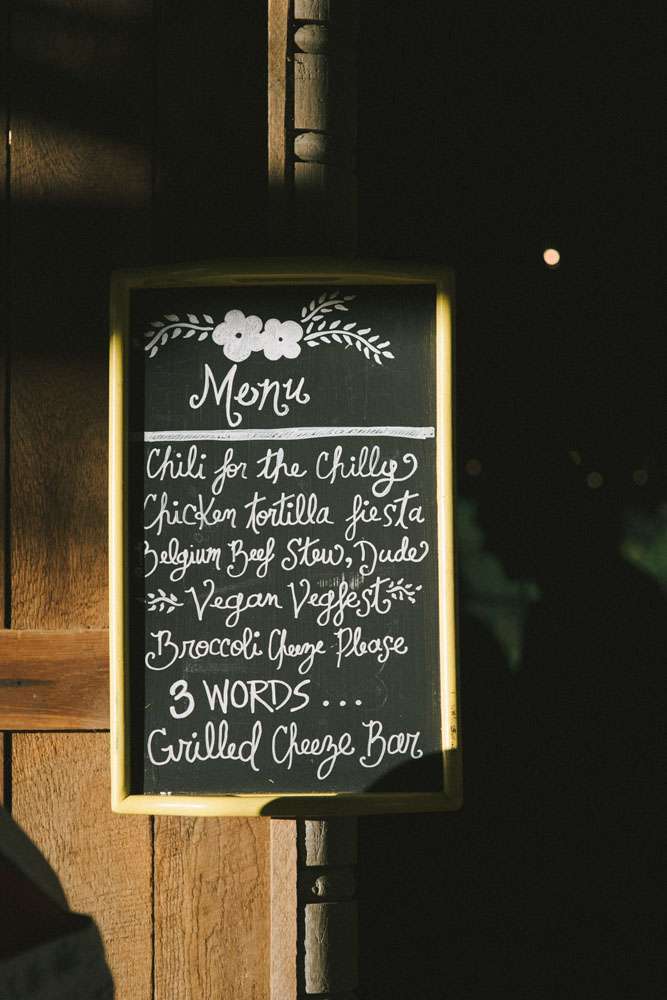 Menu
Chili for the Chilly
Chicken tortilla fiesta
Belgium Beef Stew, Dude
Vegan Vegfest
Broccoli Cheeze Please
3 WORDS ...
Grilled Cheeze Bar